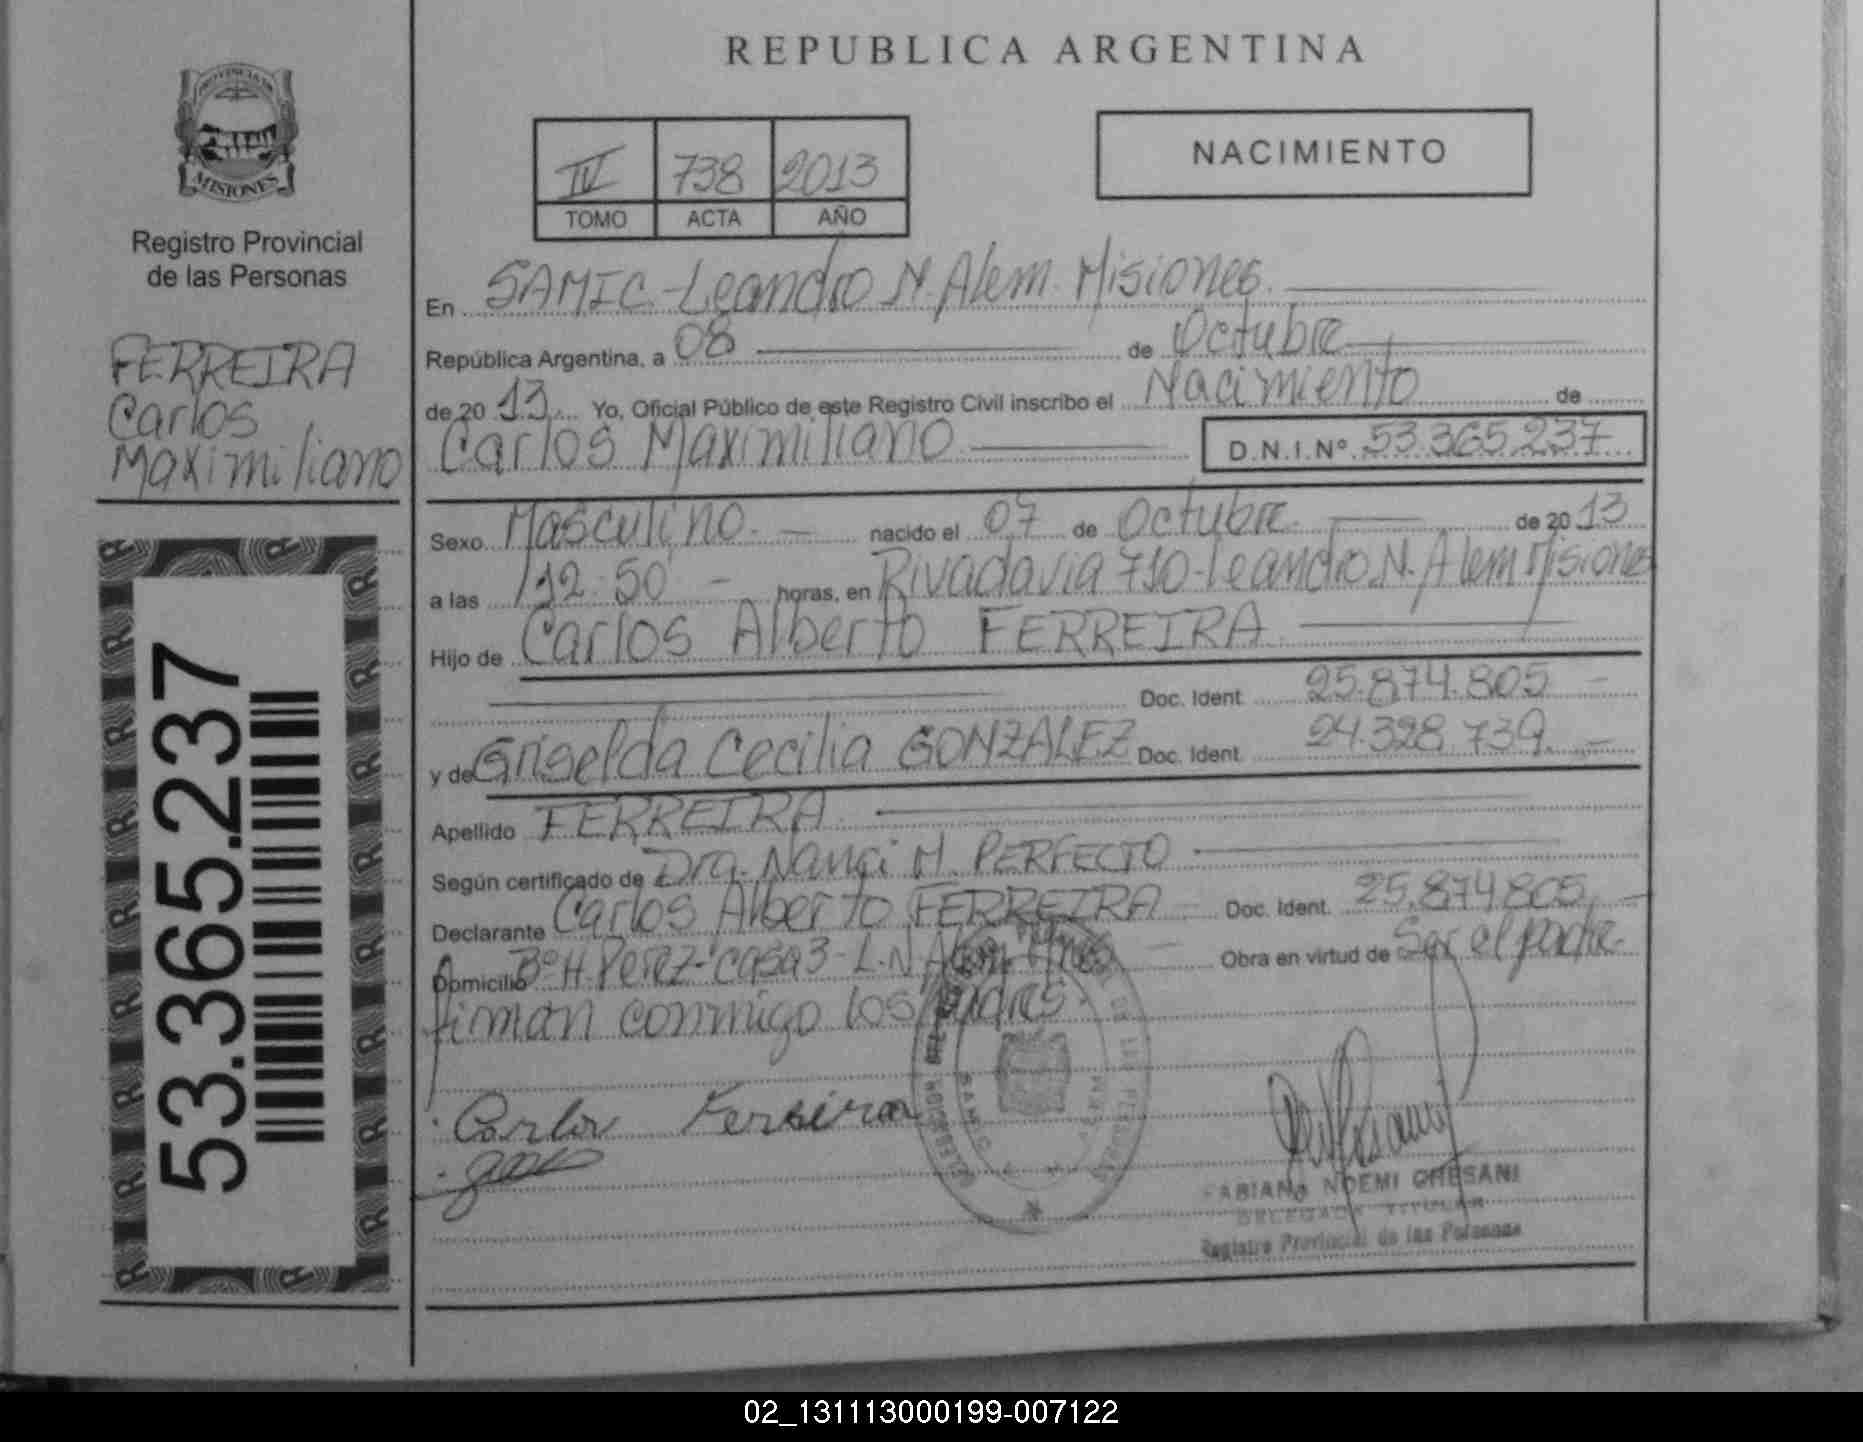 REPUBLICA ARGENTINA
PROVINCIA DE
MISIONES
Registro Provincial
de las Personas
FERREIRA
Carlos
Maximiliano
53.365.237
IV 738 2013
TOMO ACTA AÑO
NACIMIENTO
En SAMIC - Leandro N. Alem. Misiones.
República Argentina, a 08 de Octubre
de 20 13 Yo, Oficial Público de este Registro Civil inscribo el Nacimiento de
Carlos Maximiliano D.N.I.Nº 53.365.237
Sexo Masculino. nacido el 07 de Octubre. de 20 13
a las 12:50 horas, en Rivadavia 710 - Leandro N. Alem Misiones
Hijo de Carlos Alberto FERREIRA
Doc. Ident. 25.874.805
y de Griselda Cecilia GONZALEZ Doc. Ident. 24.328.739.
Apellido FERREIRA
Según certificado de Dra. Nanci M. PERFECTO
Declarante Carlos Alberto FERREIRA Doc. Ident. 25.874.805
Domicilio Bº H. Perez - casa 3 - L.N. Alem Mnes Obra en virtud de Ser el padre.
firman conmigo los padres.
Carlos Ferreira
FABIANA NOEMI GHESANI
DELEGADA TITULAR
Registro Provincial de las Personas
02_131113000199-007122